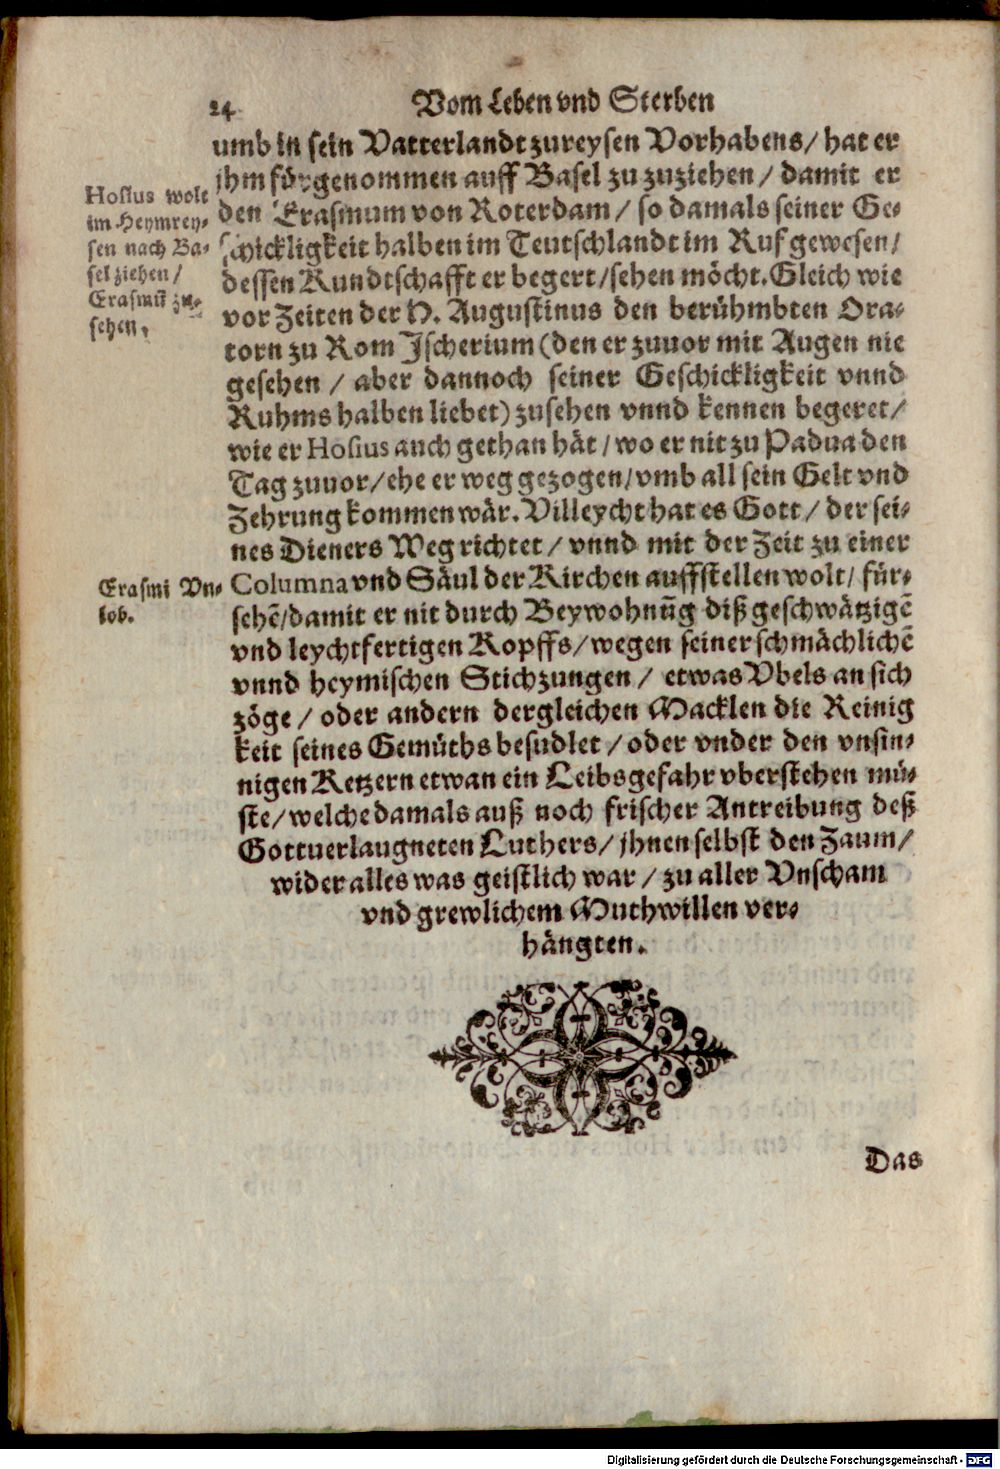 24 Vom Leben vnd Sterben
umb in sein Vatterlandt zureysen Vorhabens/ hat er
jhm fürgenommen auff Basel zu zuziehen/ damit er
den Erasmum von Roterdam/ so damals seiner Ge-
schickligkeit halben im Teutschlandt im Ruf gewesen/
dessen Kundtschafft er begert/ sehen möcht. Gleich wie
vor Zeiten der H. Augustinus den berühmbten Ora-
torn zu Rom Jscherium (den er zuuor mit Augen nie
gesehen / aber dannoch seiner Geschickligkeit vnnd
Ruhms halben liebet) zusehen vnnd kennen begeret/
wie er Hosius auch gethan hät/ wo er nit zu Padua den
Tag zuuor/ ehe er weg gezogen/ vmb all sein Gelt vnd
Zehrung kommen wär. Villeycht hat es Gott/ der sei-
nes Dieners Weg richtet/ vnnd mit der Zeit zu einer
Columna vnd Säul der Kirchen auffstellen wolt/ für-
sehẽ/ damit er nit durch Beywohnũg diß geschwätzigẽ
vnd leychtfertigen Kopffs/ wegen seiner schmächlichẽ
vnnd heymischen Stichzungen/ etwas Vbels an sich
zöge/ oder andern dergleichen Macklen die Reinig
keit seines Gemüths besudlet/ oder vnder den vnsin-
nigen Ketzern etwan ein Leibsgefahr vberstehen mü-
ste/ welche damals auß noch frischer Antreibung deß
Gottuerlaugneten Luthers/ jhnen selbst den Zaum/
wider alles was geistlich war/ zu aller Vnscham
vnd grewlichem Muthwillen ver-
hängten.
Das
Hosius wolt
im Heymrey-
sen nach Ba-
sel ziehen/
Erasmũ zu-
sehen.
Erasmi Vn-
lob.
Digitalisierung gefördert durch die Deutsche Forschungsgemeinschaft - DFG